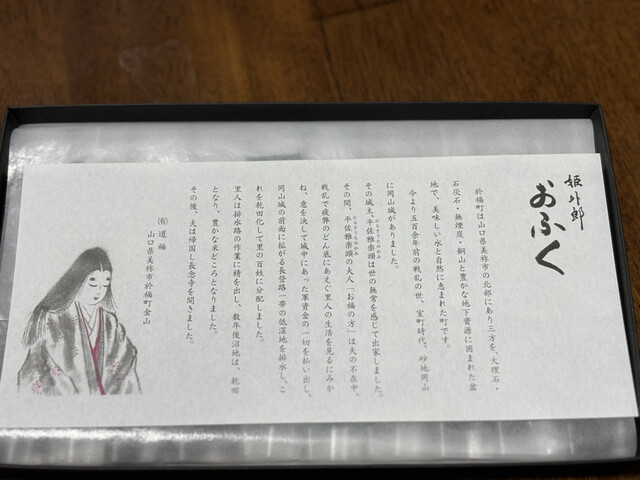 姫外郎
おふく
於福町は山口県美祢市の北部にあり三方を、大理石・
石灰石・無煙炭・銅山と豊かな地下資源に囲まれた盆
地で、美味しい水と自然に恵まれた町です。
今より五百余年前の戦乱の世、室町時代、砂地岡山
に岡山城がありました。
その城主、平佐雅楽頭は世の無常を感じて出家しました。
ひらさうたのかみ
その間、平佐雅楽頭の夫人「お福の方」は夫の不在中、
ひらさうたのかみ
戦乱で疲弊のどん底にあえぐ里人の生活を見るにみか
ね、意を決して城中にあった軍資金の一切を払い出し、
岡山城の前面に拡がる長登路一帯の低湿地を排水し、こ
れを乾田化して里の百姓に分配しました。
里人は排水路の作業に精を出し、数年後沼地は、乾田
となり、豊かな米どころとなりました。
その後、夫は帰国し長念寺を開きました。
(有)道福
山口県美祢市於福町金山